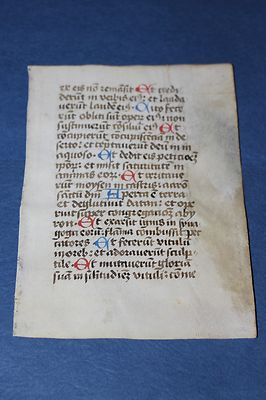 ex eis nō remāsit Et credi
derūt in verbis ei⁹: et lauda
uerūt laudē eis. Cito fece
rūt obliti sūt operū ei⁹: non
sustinuerūt cōsiliū ei⁹ Et
cōcupierūt cōcupiscētiā in de
serto: et tēptauerūt deū in in
aquoso. Et dedit eis petitiōēȝ
eoȝ: et misit saturitatē in
animas eoȝ. Et irritaue
rūt moysen in castris: aarō
sāctū dñi Aperta ē terra
et deglutiuit datan: et ope
ruit super cōgregatiōȝ aby
ron. Et exarsit ignis in syna
goga eorū: flāma cōbussit pec
catores Et fecerūt vitulū
in oreb: et adorauerūt sculp
tile. Et mutauerūt gloriā
suā in silitudinēȝ vituli: come